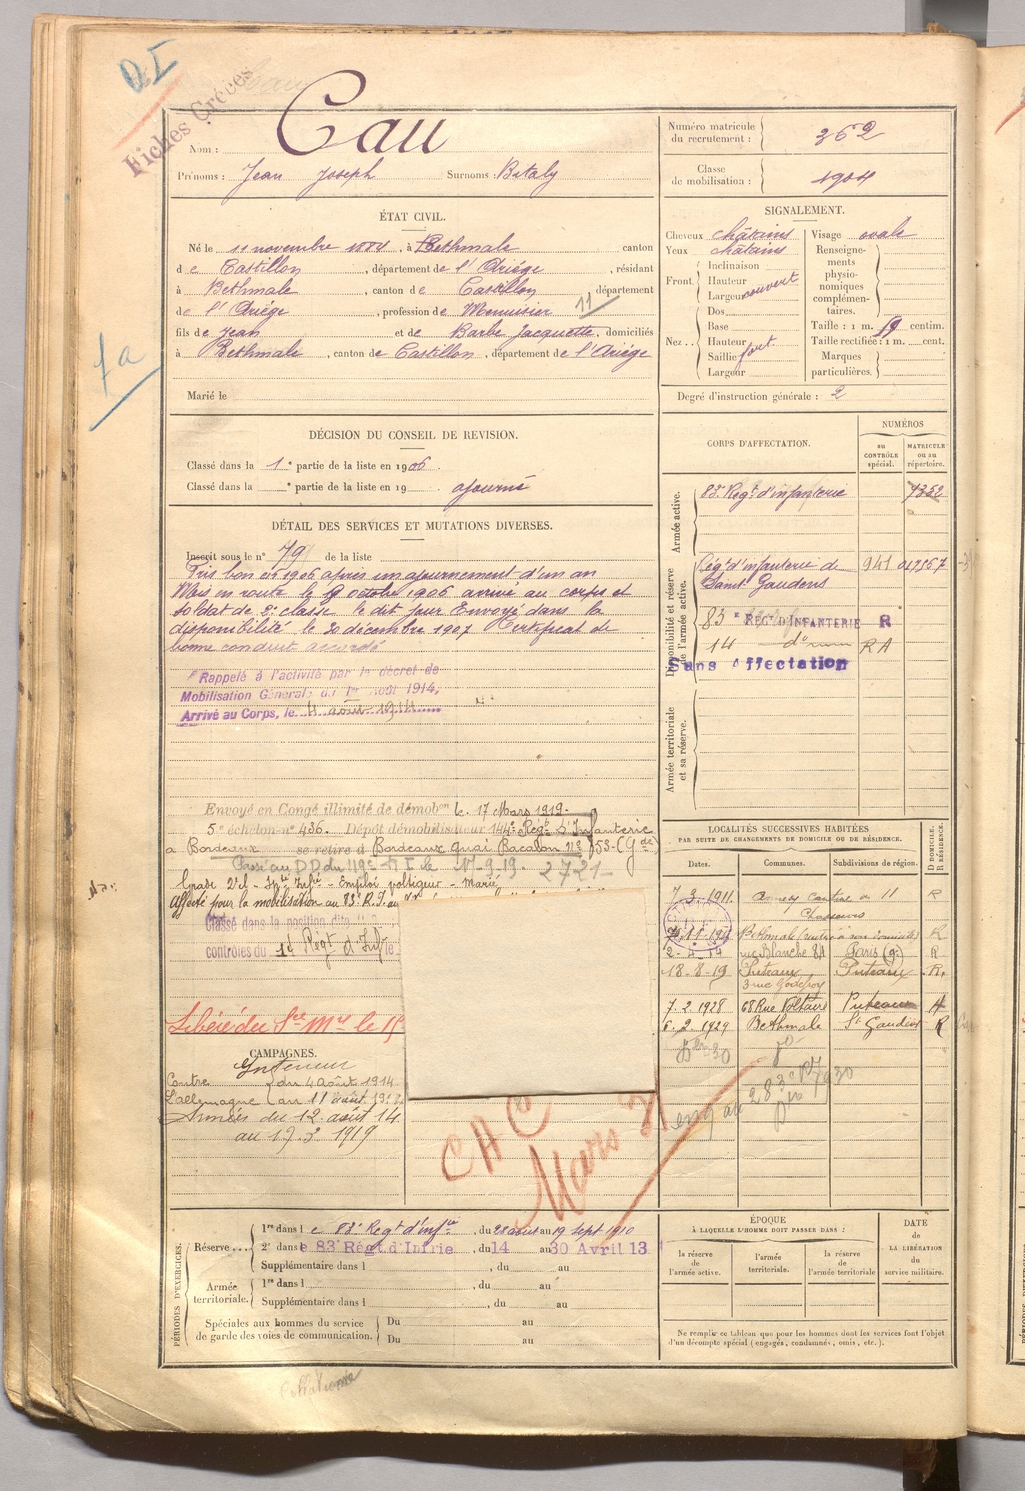 Fiches Créées
Nom : Cau
Prénoms : Jean Joseph Surnoms : Bitaly
Numéro matricule du recrutement : 362
Classe de mobilisation : 1904
ÉTAT CIVIL.
Né le 11 novembre 1884, à Bethmale canton
de Castillon, département de l'Ariége, résidant
à Bethmale, canton de Castillon, département
de l'Ariége, profession de Menuisier 11
fils de Jean et de Barbe Jacquette, domiciliés
à Bethmale, canton de Castillon, département de l'Ariége
Marié le
SIGNALEMENT.
Cheveux châtains
Yeux châtains
Front
Inclinaison
Hauteur
Largeur
couvert
Nez
Dos
Base
Hauteur
Saillie
Largeur
fort
Visage ovale
Renseignements physionomiques complémentaires.
Taille : 1 m. 59 centim.
Taille rectifiée : 1 m. cent.
Marques particulières.
Degré d'instruction générale : 2
7a
DÉCISION DU CONSEIL DE REVISION.
Classé dans la 1e partie de la liste en 1906.
Classé dans la e partie de la liste en 19 ajourné
DÉTAIL DES SERVICES ET MUTATIONS DIVERSES.
Inscrit sous le n° 79 de la liste
Pris bon en 1906 après un ajournement d'un an
Mis en route le 9 octobre 1906 arrivé au corps et
soldat de 2e classe le dit jour Envoyé dans la
disponibilité le 20 décembre 1907 Certificat de
bonne conduite accordé
Rappelé à l'activité par le décret de
Mobilisation Générale du 1er Août 1914.
Arrivé au Corps, le 4 août 1914
Envoyé en Congé illimité de démobon le 17 Mars 1919.
5e échelon n° 436. Dépôt démobilisateur 144e Régt d'Infanterie
à Bordeaux se retire à Bordeaux Quai Bacalan n°
Passé au DD du 119e RI le 10.9.19. 2721
Emploi voltigeur - Marié
Affecté pour la mobilisation au 83e R.I. au
Classé dans la position dite
contrôles du 14 Régt d'Infie le
Libéré du Sce Mre le 15
CORPS D'AFFECTATION.
NUMÉROS
au CONTRÔLE spécial.
MATRICULE ou au répertoire.
Armée active.
83e Régt d'infanterie 7352
Disponibilité et réserve de l'armée active.
Régt d'infanterie de Saint Gaudens 941
83e RÉGt D'INFANTERIE R
14 do RA
Sans Affectation
Armée territoriale et sa réserve.
LOCALITÉS SUCCESSIVES HABITÉES
PAR SUITE DE CHANGEMENTS DE DOMICILE OU DE RÉSIDENCE.
Dates. Communes. Subdivisions de région. D DOMICILE. R RÉSIDENCE.
7-3-1911 R
Bethmale (rentré à son domicile) R
2-4-14 rue Blanche 81 Paris (9e) R
18-8-19 Puteaux 3 rue Godefroy Puteaux R.
7.2.1928 68 Rue Voltaire Puteaux
6.2.1929 Bethmale St Gaudens R
CAMPAGNES.
Intérieur
Contre l'allemagne
du 4 Août 1914
au 11 août
Armées du 12 août 14
au 17.3.1919
CAC
Mars 31
PÉRIODES D'EXERCICES.
Réserve
1re dans le 83e Régt d'infie, du 28 août au 19 sept 1910
2e dans le 83e Régt d'Infrie, du 14 au 30 Avril 13
Supplémentaire dans l , du au
Armée territoriale.
1re dans l , du au
Supplémentaire dans l , du au
Spéciales aux hommes du service de garde des voies de communication.
Du au
Du au
ÉPOQUE
À LAQUELLE L'HOMME DOIT PASSER DANS :
la réserve de l'armée active.
l'armée territoriale.
la réserve de l'armée territoriale
DATE de LA LIBÉRATION du service militaire.
Ne remplir ce tableau que pour les hommes dont les services font l'objet
d'un décompte spécial (engagés, condamnés, omis, etc.).